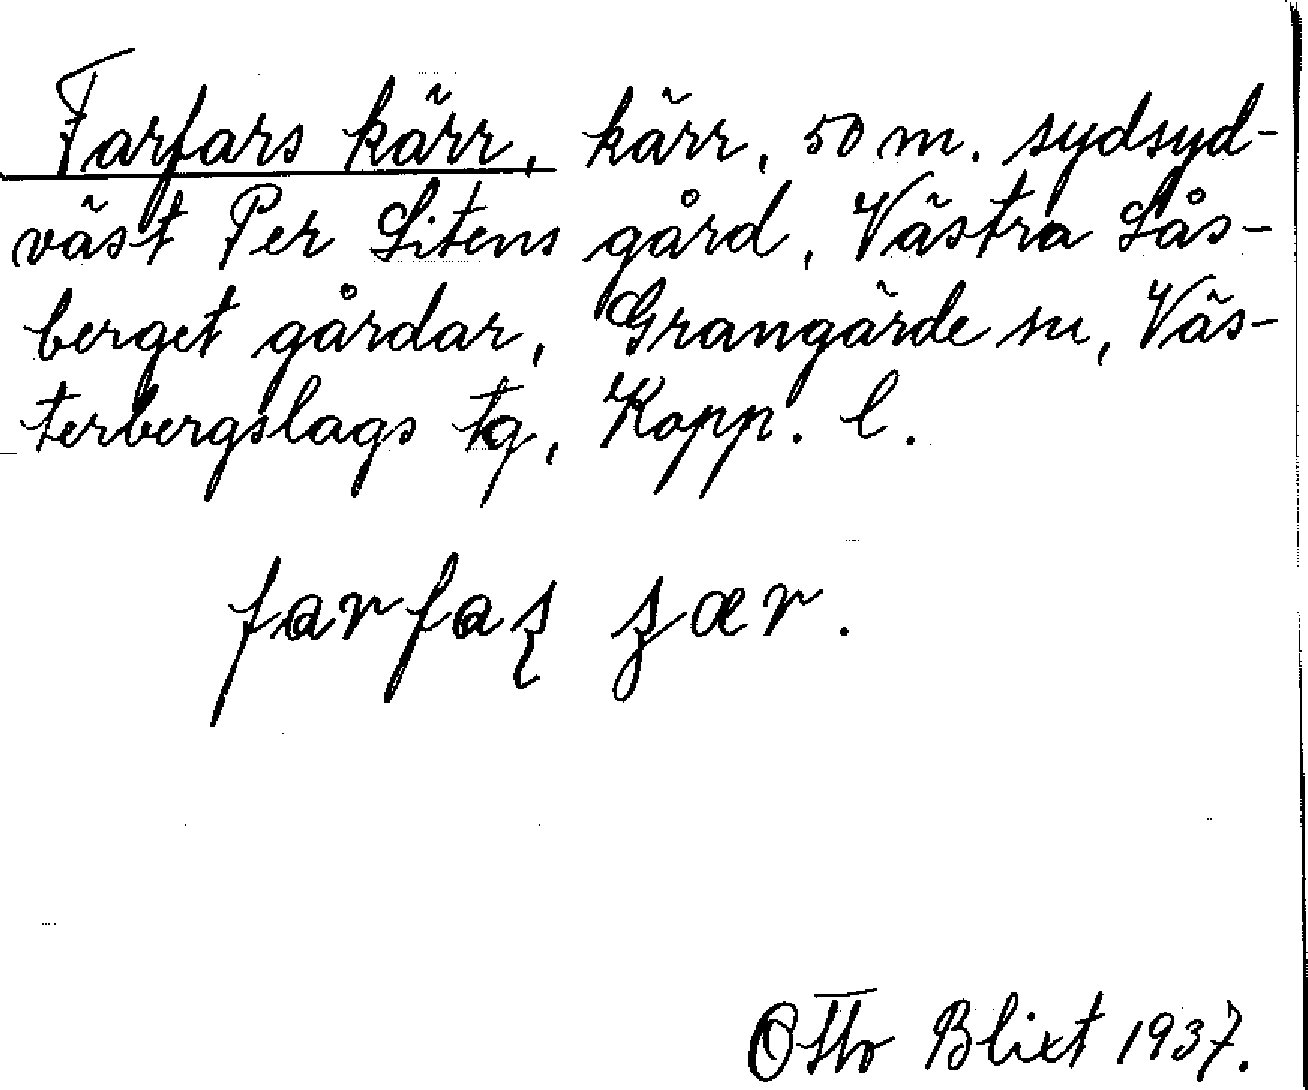 Farfars kärr, kärr, 50 m. sydsyd-
väst Per Litens gård, Västra Lås-
berget gårdar, Grangärde sn, Väs-
terbergslags tg, Kopp. l.
farfaş
Otto Blixt 1937.